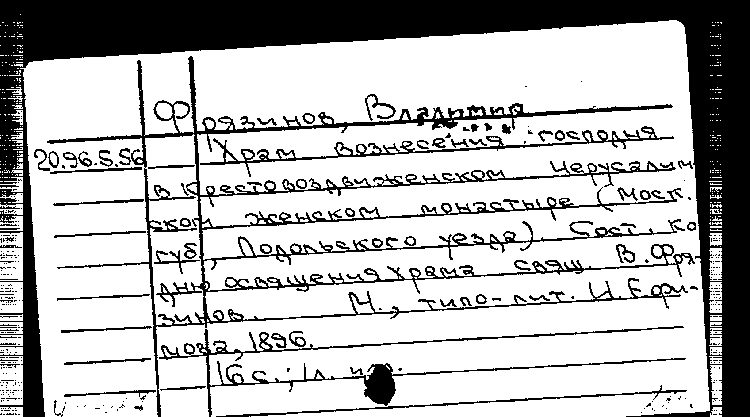 Фрязинов, Владимир
20.96.5.56 Храм вознесения господня
в Крестовоздвиженском Иерусалим
ском женском монастыре (Моск.
губ., Подольского уезда). Сост. ко
дню освящения храма свящ. В. Фря-
зинов. М., типо-лит. И. Ефи-
мова, 1896.
16 с.; 1 л.